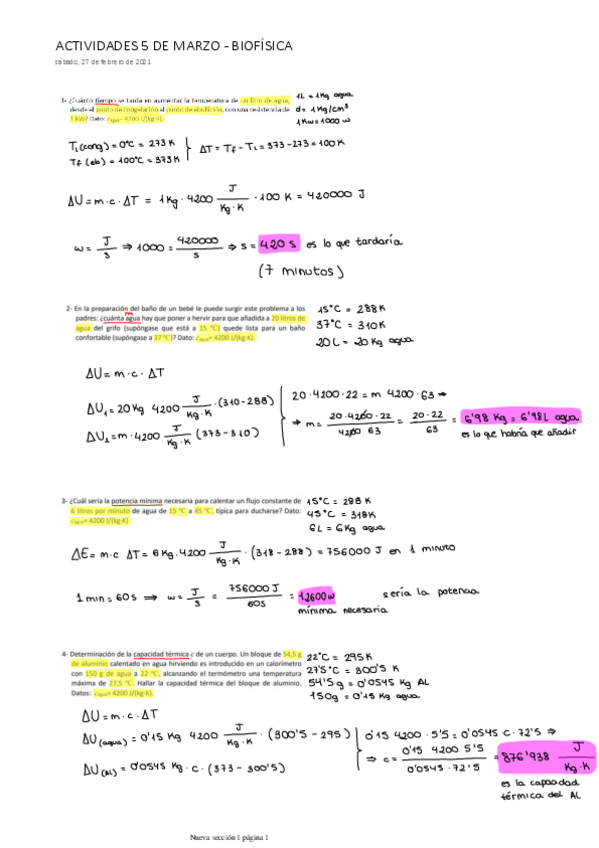 ACTIVIDADES 5 DE MARZO - BIOFÍSICA
sábado, 27 de febrero de 2021
1- ¿Cuánto tiempo se tarda en aumentar la temperatura de un litro de agua,
desde el punto de congelación al punto de ebullición, con una resistencia de
1 kW? Dato: cagua= 4200 J/(kg·K).
1L = 1Kg agua
d = 1Kg/cm³
1Kw = 1000 w
Ti (cong) = 0°C = 273 K
Tf (eb) = 100°C = 373K
ΔT = Tf - Ti = 373-273 = 100K
ΔU = m · c · ΔT = 1Kg · 4200 J/Kg·K · 100 K = 420000 J
w = J/s ⇒ 1000 = 420000/s ⇒ s = 420 s es lo que tardaría
(7 minutos)
2- En la preparación del baño de un bebé le puede surgir este problema a los
padres: ¿cuánta agua hay que poner a hervir para que añadida a 20 litros de
agua del grifo (supóngase que está a 15 °C) quede lista para un baño
confortable (supóngase a 37 °C)? Dato: cagua= 4200 J/(kg·K).
m
15°C = 288K
37°C = 310K
20L = 20Kg agua
ΔU = m · c · ΔT
ΔU1 = 20Kg 4200 J/Kg·K · (310-288)
ΔU2 = m · 4200 J/Kg·K (373-310)
20 · 4200 · 22 = m 4200 · 63 →
→ m = 20 · 4200 · 22/4200 63 = 20 · 22/63 = 6'98 Kg = 6'98L agua
es lo que habría que añadir
3- ¿Cuál sería la potencia mínima necesaria para calentar un flujo constante de
6 litros por minuto de agua de 15 °C a 45 °C, típica para ducharse? Dato:
cagua= 4200 J/(kg·K)
15°C = 288 K
45°C = 318K
6L = 6Kg agua
ΔE = m · c ΔT = 6 Kg · 4200 J/Kg·K · (318-288) = 756000 J en 1 minuto
1 min = 60s ⇒ w = J/s = 756000 J/60s = 12600w sería la potencia
mínima necesaria
4- Determinación de la capacidad térmica c de un cuerpo. Un bloque de 54,5 g
de aluminio calentado en agua hirviendo es introducido en un calorímetro
con 150 g de agua a 22 °C, alcanzando el termómetro una temperatura
máxima de 27,5 °C. Hallar la capacidad térmica del bloque de aluminio.
Datos: cagua= 4200 J/(kg·K).
22°C = 295K
27'5°C = 300'5 K
54'5g = 0'0545 Kg AL
150g = 0'15 Kg agua
ΔU = m · c · ΔT
ΔU(agua) = 0'15 Kg 4200 J/Kg·K · (300'5 - 295)
ΔU(AL) = 0'0545 Kg · c · (373 - 300'5)
0'15 4200 · 5'5 = 0'0545 · c · 72'5 ⇒
⇒ c = 0'15 4200 5'5/0'0545 · 72'5 = 876'938 J/Kg·K
es la capacidad
térmica del AL
Nueva sección 1 página 1